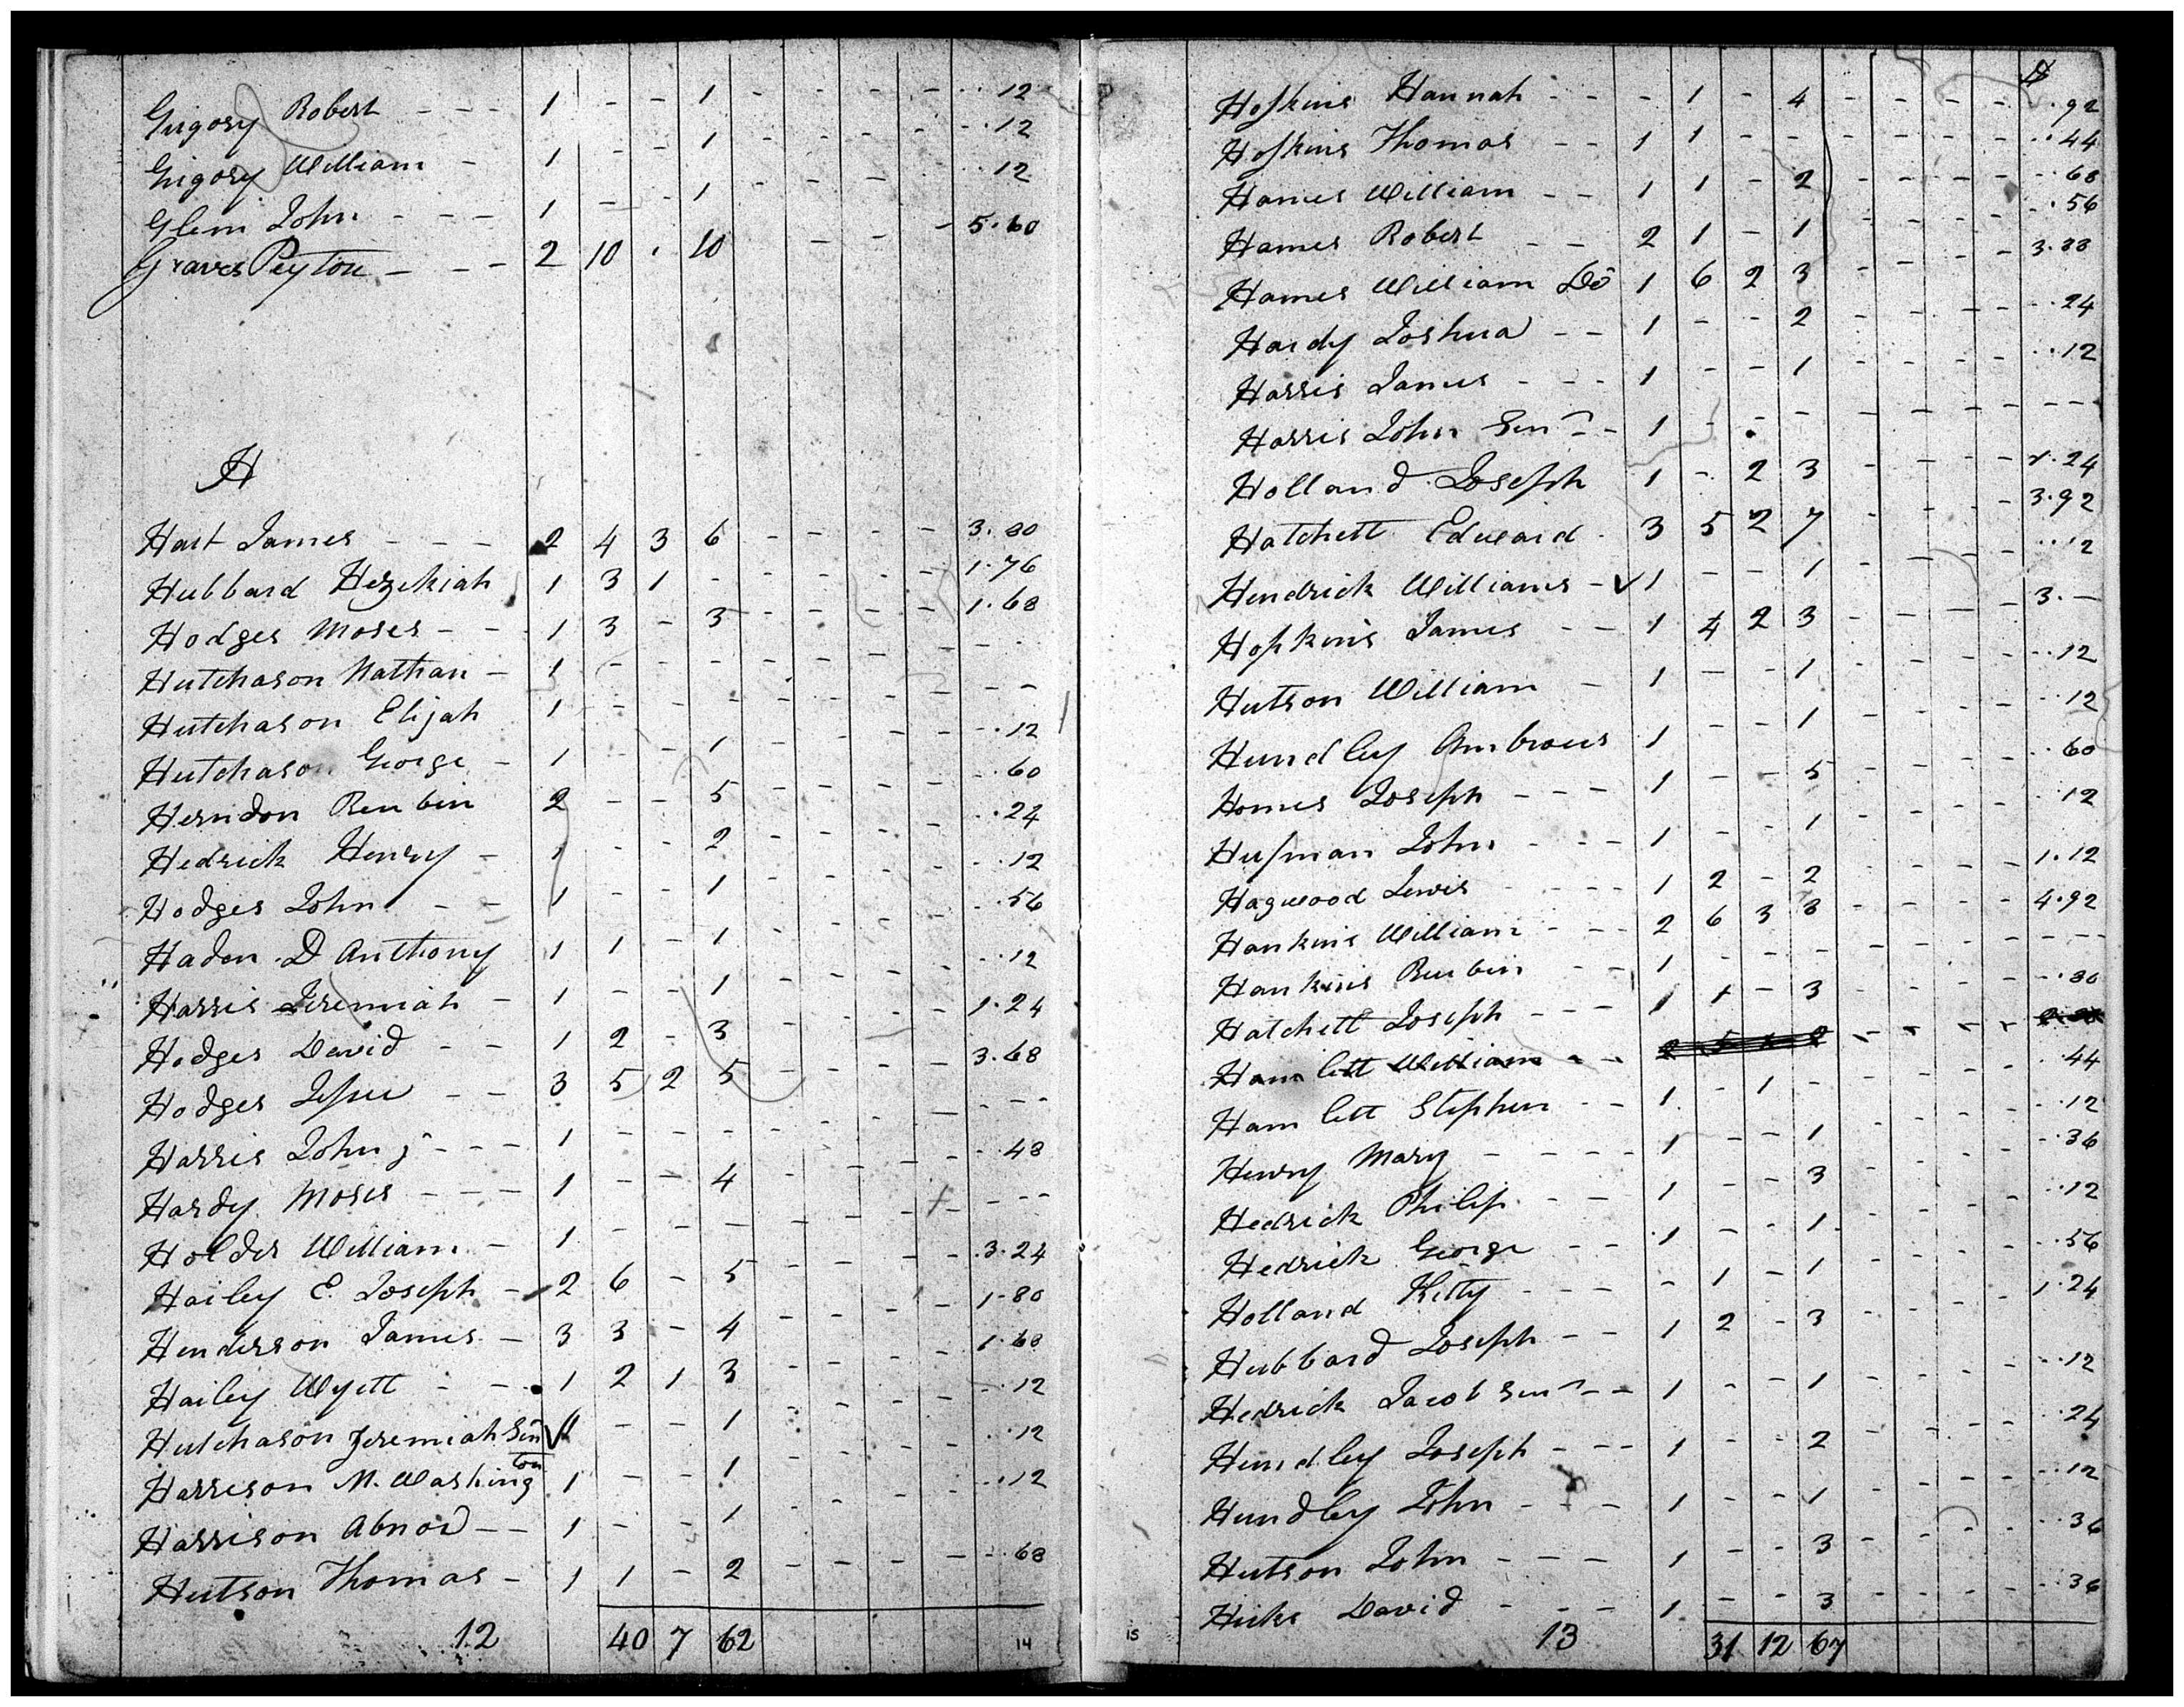 Grigory Robert - - - 1 - - 1 - - - - .. 12
Grigory William - 1 - - 1 - - - - .. 12
Glenn John - - - 1 - - 1 - - - .. 12
Graves Peyton - - - 2 10 . 10 - - - 5.60
H
Hart James - - - 2 4 3 6 - - - - 3.80
Hubbard Hezekiah 1 3 1 - - - - - 1.76
Hodges Moses - - 1 3 - 3 - - - - 1.68
Hutchason Nathan - 1 - - - - - - - - -
Hutchason Elijah 1 - - - - - - - - -
Hutchason George - 1 - - 1 - - - - .. 12
Herndon Reubin 2 - - 5 - - - - .. 60
Hedrick Henry - 1 - - 2 - - - - .. 24
Hodges John - - 1 - - 1 - - - - .. 12
Haden D Anthony 1 1 - 1 - - - - .. 56
Harris Jeremiah - 1 - - 1 - - - - .. 12
Hodges David - - 1 2 - 3 - - - - 1.24
Hodges Jesse - - 3 5 2 5 - - - - 3.68
Harris John j - - - 1 - - - - - - - - -
Hardy Moses - - - 1 - - 4 - - - - .. 48
Holder William - 1 - - - - - - - - - -
Hailey E. Joseph - 2 6 - 5 - - - - 3.24
Henderson James - 3 3 - 4 - - - - 1.80
Hailey Wyett - - 1 2 1 3 - - - - 1.68
Hutchason Jeremiah Sen 1 - - 1 - - - - .. 12
Harrison M. Washington 1 - - 1 - - - - .. 12
Harrison Abnod - - 1 - - 1 - - - - .. 12
Hutson Thomas - 1 1 - 2 - - - - .. 68
12 40 7 62 14
H
Hoskins Hannah - - - 1 - 4 - - - - .. 92
Hoskins Thomas - - 1 1 - - - - - - .. 44
Hames William - - 1 1 - 2 - - - - .. 68
Hames Robert - - 2 1 - 1 - - - - .. 56
Hames William Do 1 6 2 3 - - - - 3.88
Hardy Joshua - - 1 - - 2 - - - - .. 24
Harris James - - - 1 - - 1 - - - - .. 12
Harris John Senr - - 1 - - - - - - - - -
Holland Joseph 1 - 2 3 - - - - 1.24
Hatchett Edward 3 5 2 7 - - - - 3.92
Hendrick Williams - 1 - - 1 - - - - .. 12
Hopkins James - - 1 4 2 3 - - - - 3.—
Hutson William - 1 - - 1 - - - - .. 12
Hundley Ambrous 1 - - 1 - - - - .. 12
Homes Joseph - - - 1 - - 5 - - - - .. 60
Husman John - - - 1 - - 1 - - - - .. 12
Hagwood Lewis - - - - 1 2 - 2 - - - - 1.12
Hankins William - - - 2 6 3 8 - - - - 4.92
Hankins Reubin - - 1 - - - - - - - - -
Hatchett Joseph - - - 1 1 - 3 - - - - .. 80
Hamlett William - -
Hamlett Stephen - - 1 - 1 - - - - - .. 44
Henry Mary - - - - 1 - - 1 - - - - .. 12
Hedrick Philip - - 1 - - 3 - - - - .. 36
Hedrick George - - 1 - - 1 - - - - .. 12
Holland Kitty - - - - 1 - 1 - - - - .. 56
Hubbard Joseph - - 1 2 - 3 - - - - 1.24
Hedrick Jacob Senr - - 1 - - 1 - - - - .. 12
Hundley Joseph - - - 1 - - 2 - - - - .. 24
Hundley John - - - 1 - - 1 - - - - .. 12
Hutson John - - - 1 - - 3 - - - - .. 36
Hicks David - - - 1 - - 3 - - - - .. 36
15 13 31 12 67